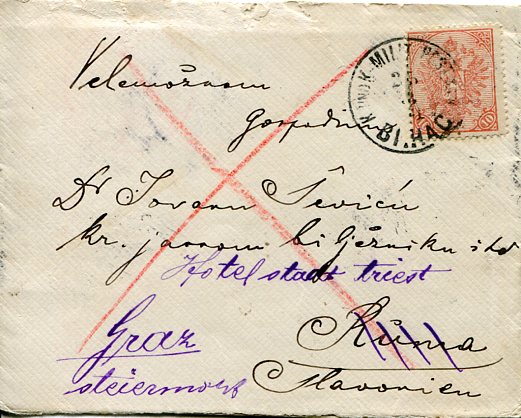 K. UND K. MILIT. POST
BIHAĆ
10
Velemožnom
Gospodinu
Dr Jovanu Ševiću
kr. javnom bilježniku itd
Hotel stadt triest
Graz
Ruma
steiermark
Slavonien